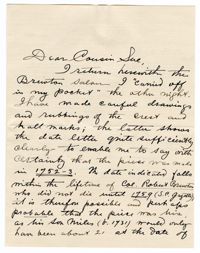 Dear Cousin Sue,
I return herewith the
Bruston Salver I "carried off
in my pocket" the other night.
I have made careful drawings
and rubbings of the crest and
hall marks, the latter shows
the date letter quite sufficiently
clearly to enable me to say with
certainty that the piece was made
in 1752-3. The date indicated falls
within the lifetime of Col. Robert
who did not die until
it is therefore possible and perhaps
probable that the piece was his,
as his son (b. 1731) would only
have been about 21 at the date of